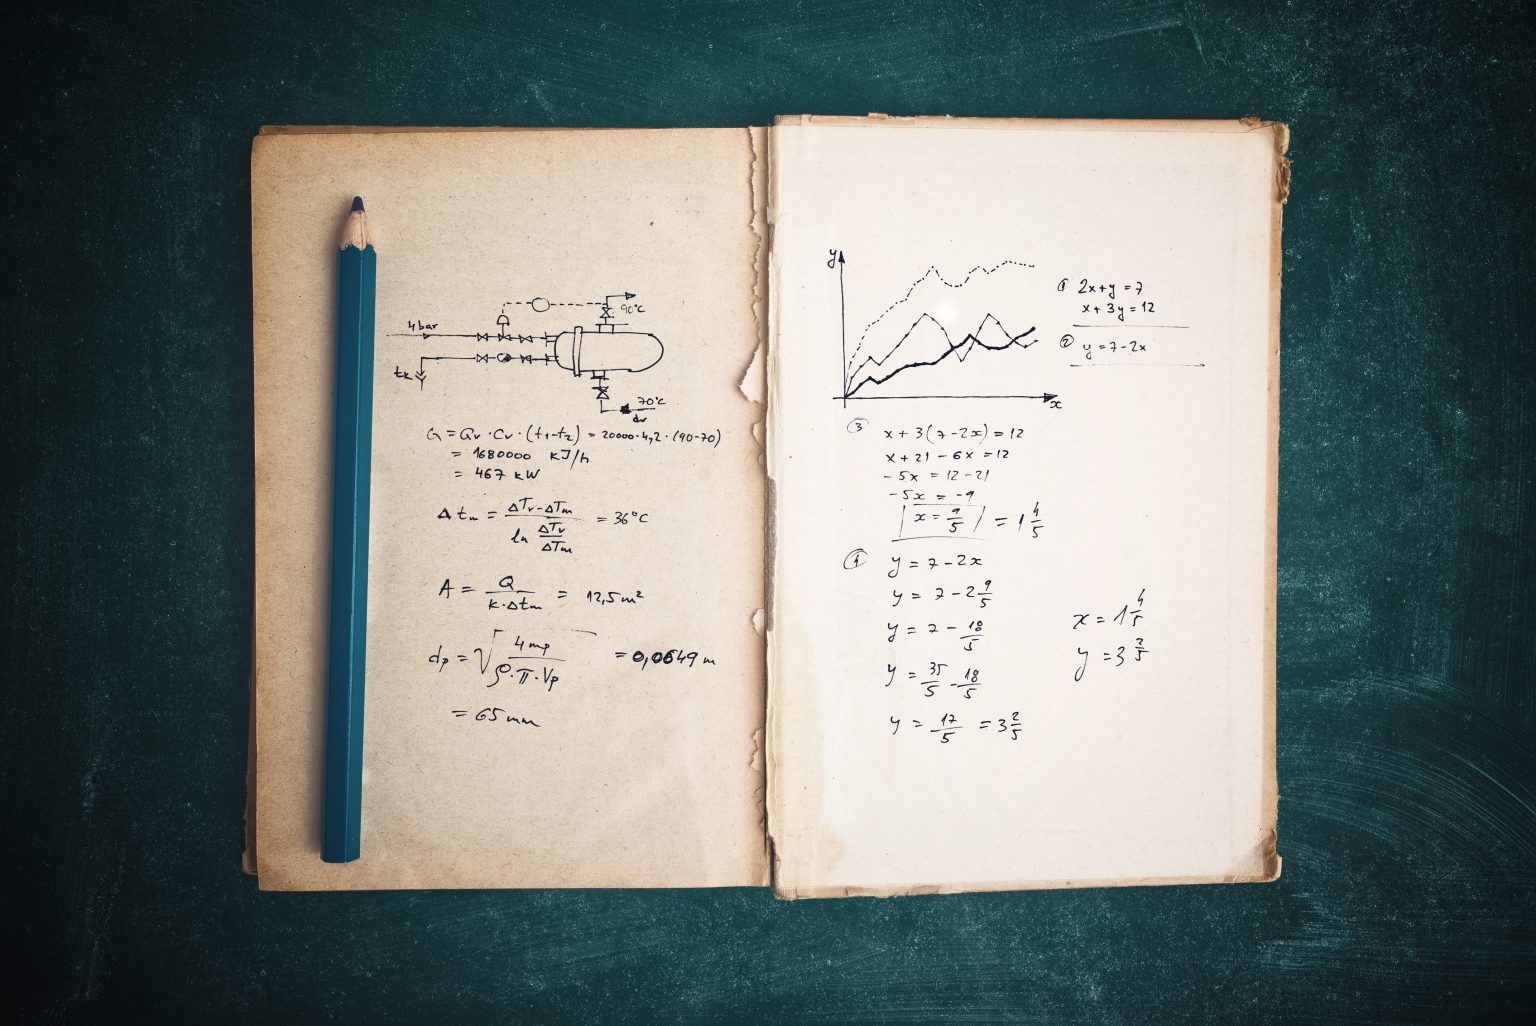 4bar
90°C
tk
70°C
Q = Qv · Cv · (t1-t2) = 20000·4,2·(90-70)
= 1680000 kJ/h
= 467 kW
Δtm = ΔTv-ΔTm / ln ΔTv/ΔTm = 36°C
A = Q / k·Δtm = 12,5m²
dp = √ 4mp / ρ·π·Vp = 0,0649 m
= 65mm
y
x
① 2x+y=7
x+3y=12
② y=7-2x
③ x+3(7-2x)=12
x+21-6x=12
-5x=12-21
-5x=-9
x=9/5 = 1 4/5
④ y=7-2x
y=7-2 9/5
y=7-18/5
y=35/5-18/5
y=17/5 =3 2/5
x=1 4/5
y=3 2/5